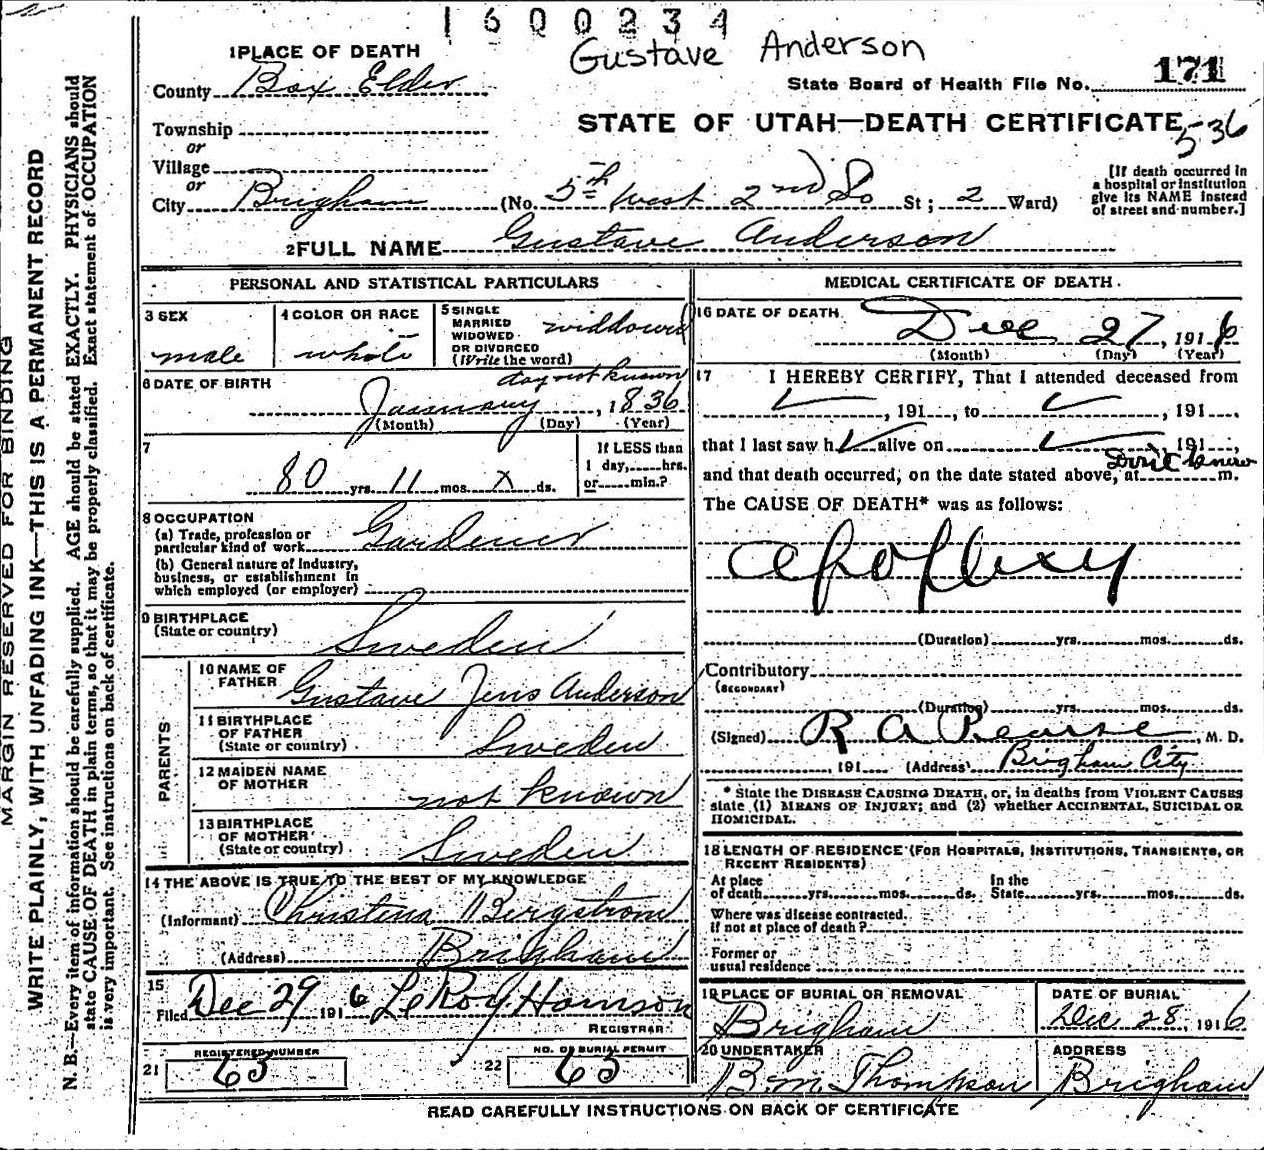 1600234
Gustave Anderson
1 PLACE OF DEATH
County Box Elder
State Board of Health File No. 171
Township
STATE OF UTAH—DEATH CERTIFICATE
5-36
or
Village
or
City Brigham (No. 5th West 2nd So St; 2 Ward)
[If death occurred in
a hospital or institution
give its NAME instead
of street and number.]
2 FULL NAME Gustave Anderson
PERSONAL AND STATISTICAL PARTICULARS
3 SEX
male
4 COLOR OR RACE
white
5 SINGLE
MARRIED
WIDOWED
OR DIVORCED
(Write the word)
widdowed
6 DATE OF BIRTH
day not known
January, 1836
(Month) (Day) (Year)
7
80 yrs. 11 mos. X ds.
If LESS than
1 day, hrs.
or min.?
8 OCCUPATION
(a) Trade, profession or
particular kind of work Gardener
(b) General nature of industry,
business, or establishment in
which employed (or employer)
9 BIRTHPLACE
(State or country)
Sweden
PARENTS
10 NAME OF
FATHER
Gustave Jens Anderson
11 BIRTHPLACE
OF FATHER
(State or country)
Sweden
12 MAIDEN NAME
OF MOTHER
not known
13 BIRTHPLACE
OF MOTHER
(State or country)
Sweden
14 THE ABOVE IS TRUE TO THE BEST OF MY KNOWLEDGE
(Informant) Christena Bergstrom
(Address) Brigham
15
Filed Dec 29 1916 LeRoy J. Harrison
REGISTRAR
21
REGISTERED NUMBER
63
22
NO. OF BURIAL PERMIT
63
MEDICAL CERTIFICATE OF DEATH.
16 DATE OF DEATH
Dec 27, 1916
(Month) (Day) (Year)
17 I HEREBY CERTIFY, That I attended deceased from
, 191, to , 191.
that I last saw h alive on 191,
and that death occurred, on the date stated above, at Don't know m.
The CAUSE OF DEATH* was as follows:
Apoplexy
(Duration) yrs. mos. ds.
Contributory
(SECONDARY)
(Duration) yrs. mos. ds.
(Signed) R A Pearse, M. D.
, 191 (Address) Brigham City
* State the DISEASE CAUSING DEATH, or, in deaths from VIOLENT CAUSES
state (1) MEANS OF INJURY; and (2) whether ACCIDENTAL, SUICIDAL OR
HOMICIDAL.
18 LENGTH OF RESIDENCE (FOR HOSPITALS, INSTITUTIONS, TRANSIENTS, OR
RECENT RESIDENTS)
At place
of death yrs. mos. ds.
In the
State yrs. mos. ds.
Where was disease contracted.
if not at place of death?
Former or
usual residence
19 PLACE OF BURIAL OR REMOVAL
Brigham
DATE OF BURIAL
Dec 28, 1916
20 UNDERTAKER
B. M. Thompson
ADDRESS
Brigham
READ CAREFULLY INSTRUCTIONS ON BACK OF CERTIFICATE
MARGIN RESERVED FOR BINDING
WRITE PLAINLY, WITH UNFADING INK—THIS IS A PERMANENT RECORD
N. B.—Every item of information should be carefully supplied. AGE should be stated EXACTLY. PHYSICIANS should
state CAUSE OF DEATH in plain terms, so that it may be properly classified. Exact statement of OCCUPATION
is very important. See instructions on back of certificate.